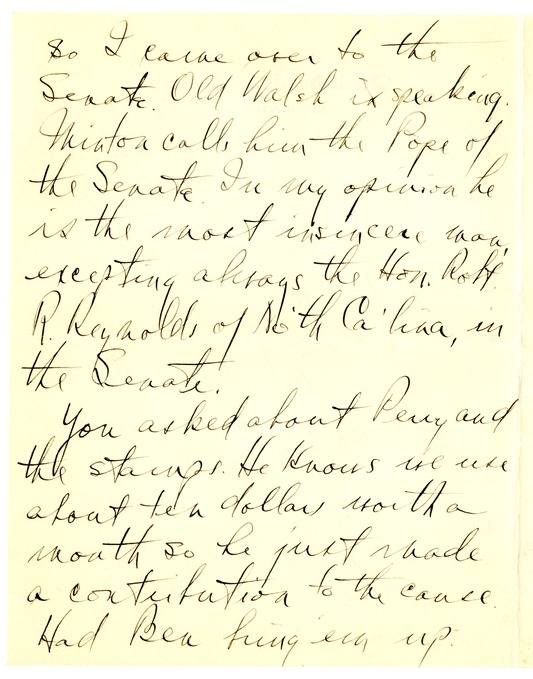 so I came over to the
Senate. Old Walsh is speaking.
Minton calls him the Pope of
the Senate. In my opinion he
is the most insincere man,
excepting always the Hon. Robt.
R. Reynolds of No'th Ca'lina, in
the Senate.
You asked about Perry and
the stamps. He knows we use
about ten dollars worth a
month so he just made
a contribution to the cause.
Had Ben bring em up.